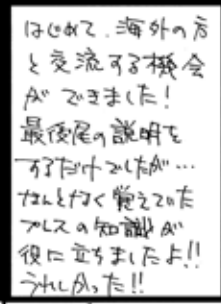 はじめて、海外の方
と交流する機会
ができました!
最後尾の説明を
するだけでしたが…
なんとなく覚えていた
プレスの知識が
役に立ちましたよ!!
うれしかった!!